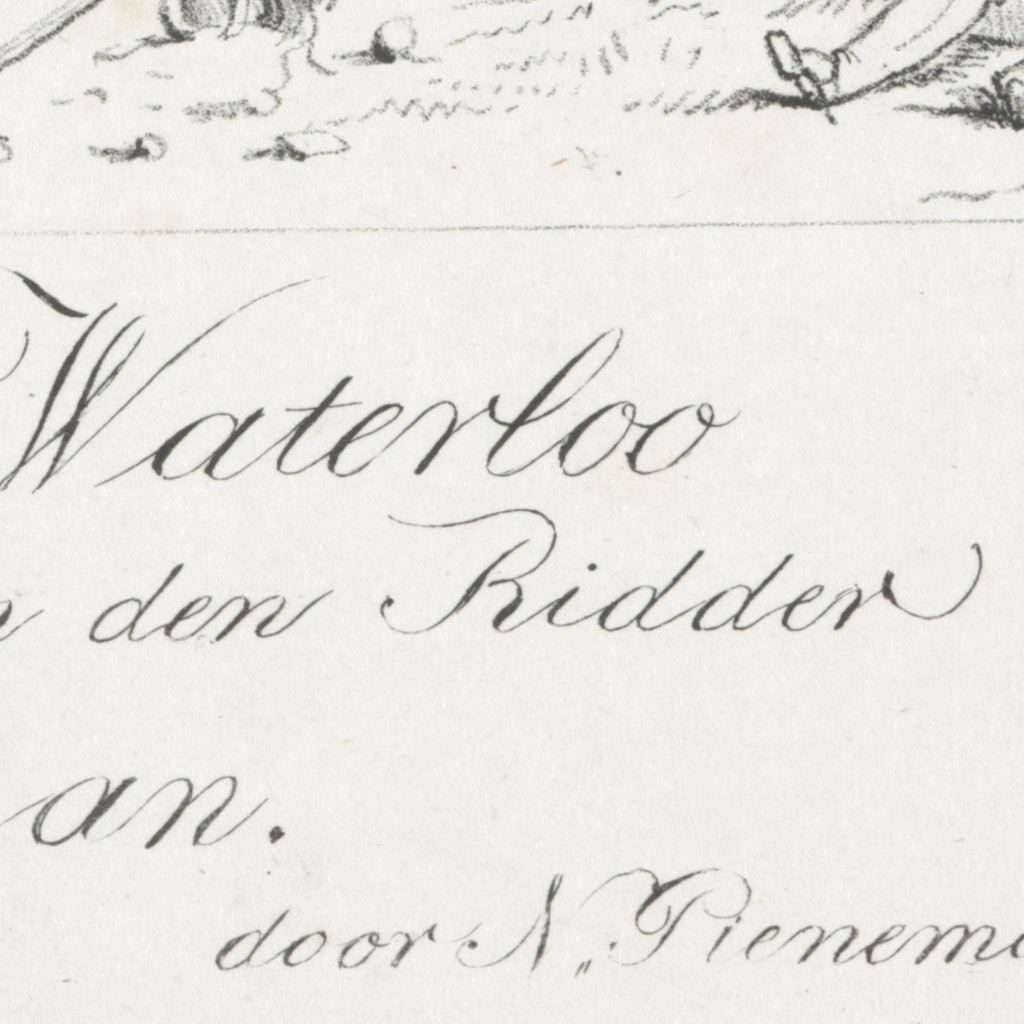 Waterloo
n den Ridder
an.
door N. Pienema